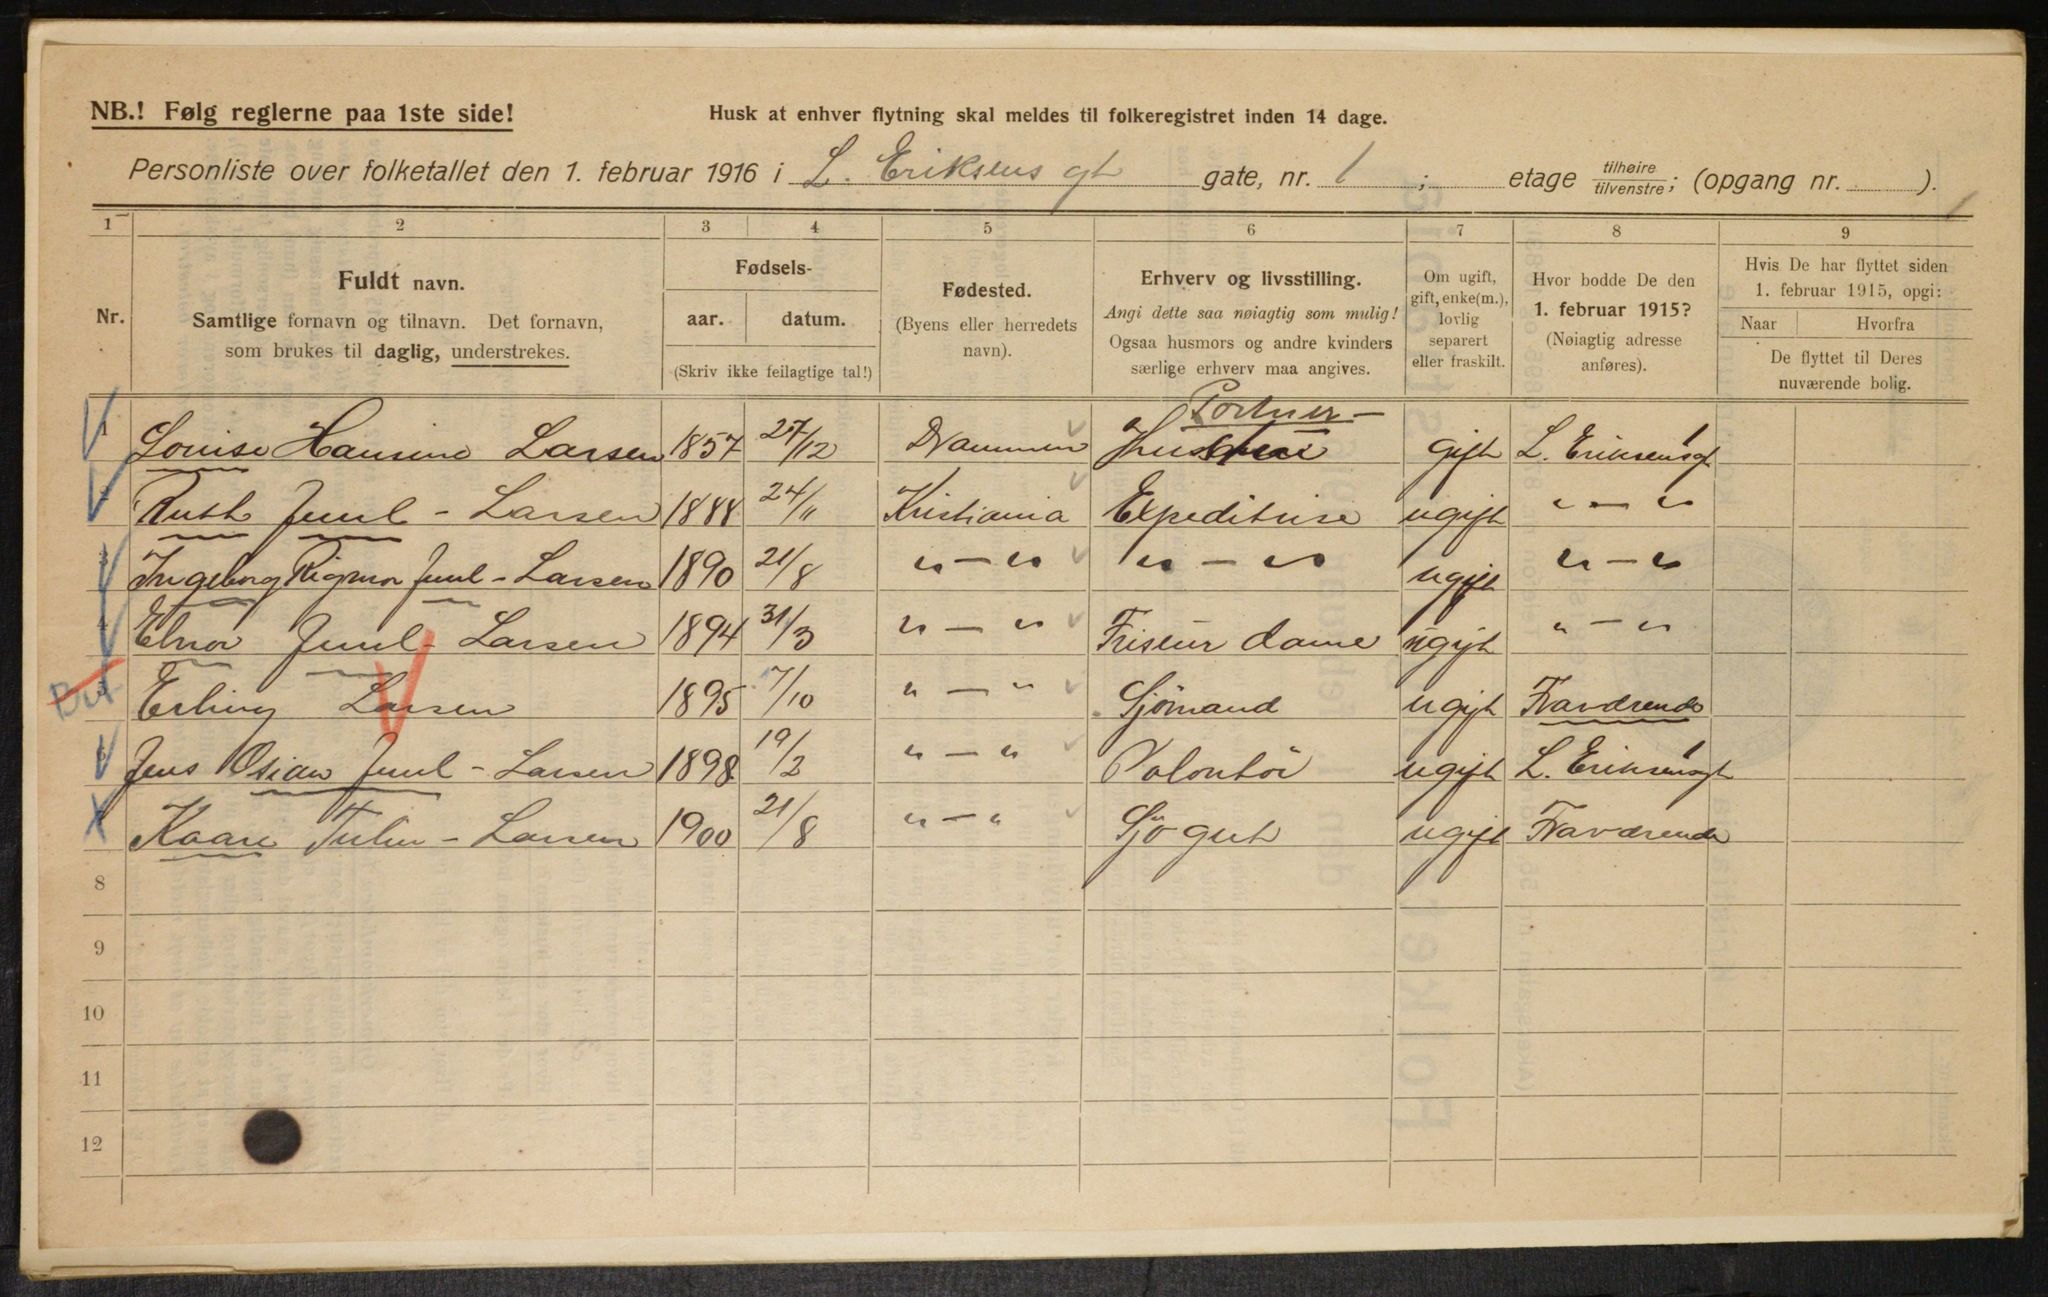 NB.! Følg reglerne paa 1ste side!
Husk at enhver flytning skal meldes til folkeregistret inden 14 dage.
Personliste over folketallet den 1. februar 1916 i L. Eriksens gt gate, nr. 1 ; etage tilhøire/tilvenstre; (opgang nr. ).
1 2 3 4 5 6 7 8 9
Nr.
Fuldt navn.
Samtlige fornavn og tilnavn. Det fornavn,
som brukes til daglig, understrekes.
Fødsels-
aar. datum.
(Skriv ikke feilagtige tal!)
Fødested.
(Byens eller herredets
navn).
Erhverv og livsstilling.
Angi dette saa nøiagtig som mulig!
Ogsaa husmors og andre kvinders
særlige erhverv maa angives.
Om ugift,
gift, enke(m.),
lovlig
separert
eller fraskilt.
Hvor bodde De den
1. februar 1915?
(Nøiagtig adresse
anføres).
Hvis De har flyttet siden
1. februar 1915, opgi:
Naar Hvorfra
De flyttet til Deres
nuværende bolig.
Portner
1 Louise Hansine Larsen 1857 27/12 Drammen gift L. Eriksensgt 1
2 Ruth Juul - Larsen 1888 24/11 Kristiania Expeditrise ugift " — "
3 Ingeborg Rigmor Juul - Larsen 1890 21/8 " — " " — " ugift " — "
4 Elnor Juul - Larsen 1894 31/3 " — " Friseur dame ugift " — "
5 Erling Larsen 1895 7/10 " — " Sjömand ugift Fraværende
6 Jens Osian Juul - Larsen 1898 19/2 " — " Volontör ugift L. Eriksensgt 1
7 Kaare Larsen 1900 21/8 " — " Sjögut ugift Fraværende
8
9
10
11
12